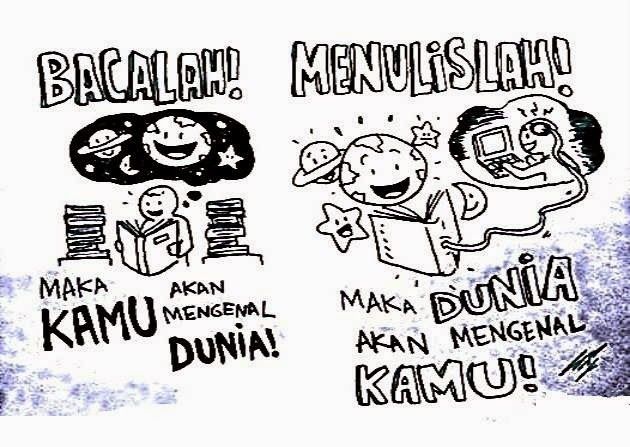 BACALAH!
MAKA
KAMU AKAN
MENGENAL
DUNIA!
MENULISLAH!
MAKA DUNIA
AKAN MENGENAL
KAMU!